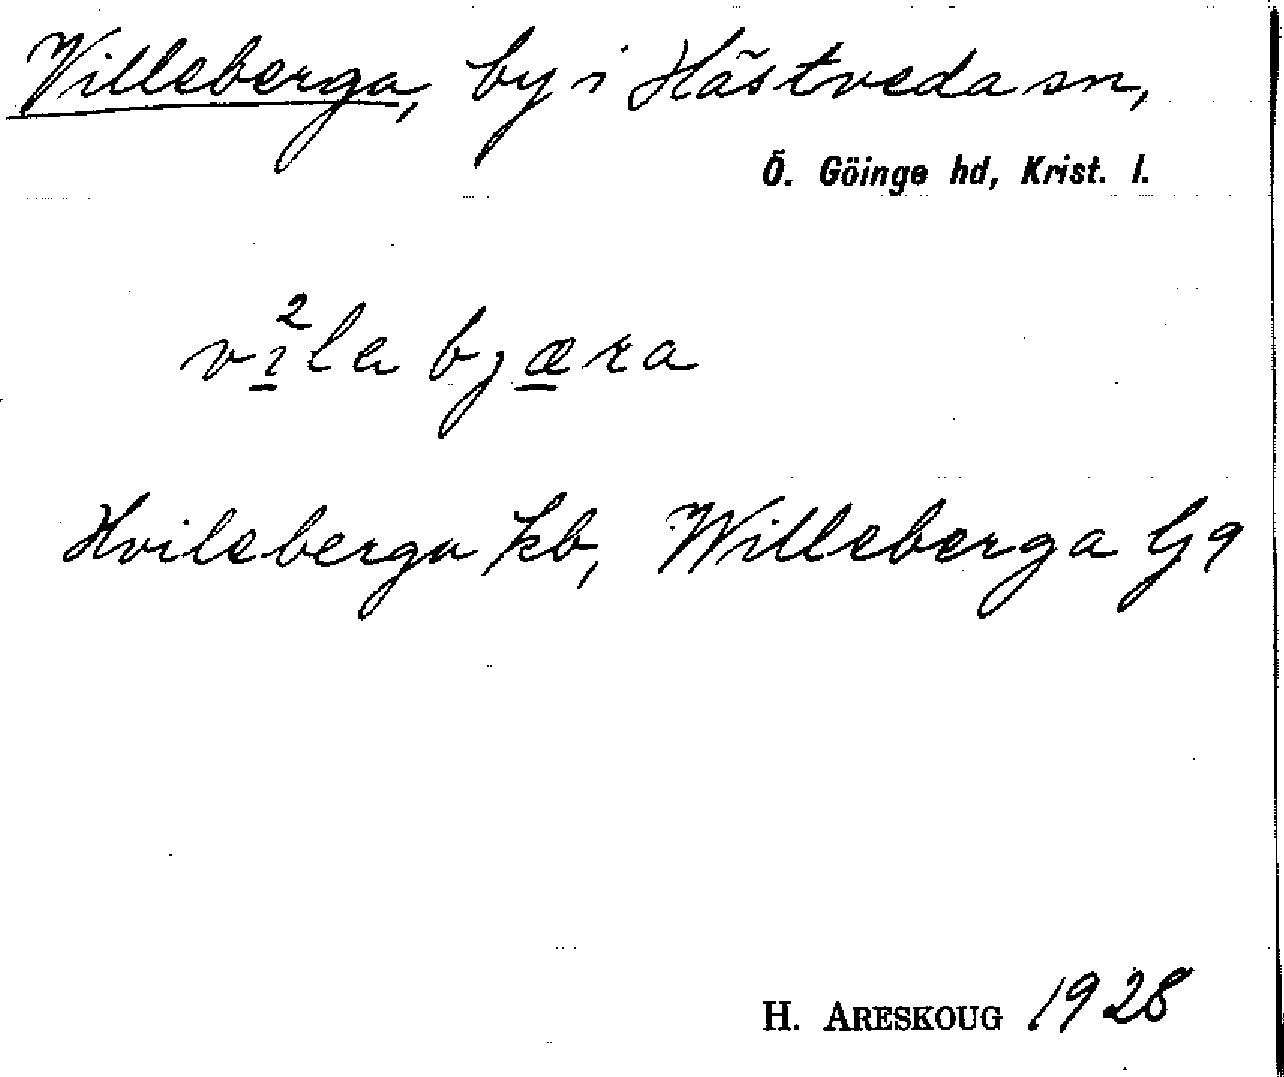 Villeberga, by i Hästveda sn,
Ö. Göinge hd, Krist. l.
vi²la bjæra
Hvileberga kb, Willeberga G9
H. ARESKOUG 1928